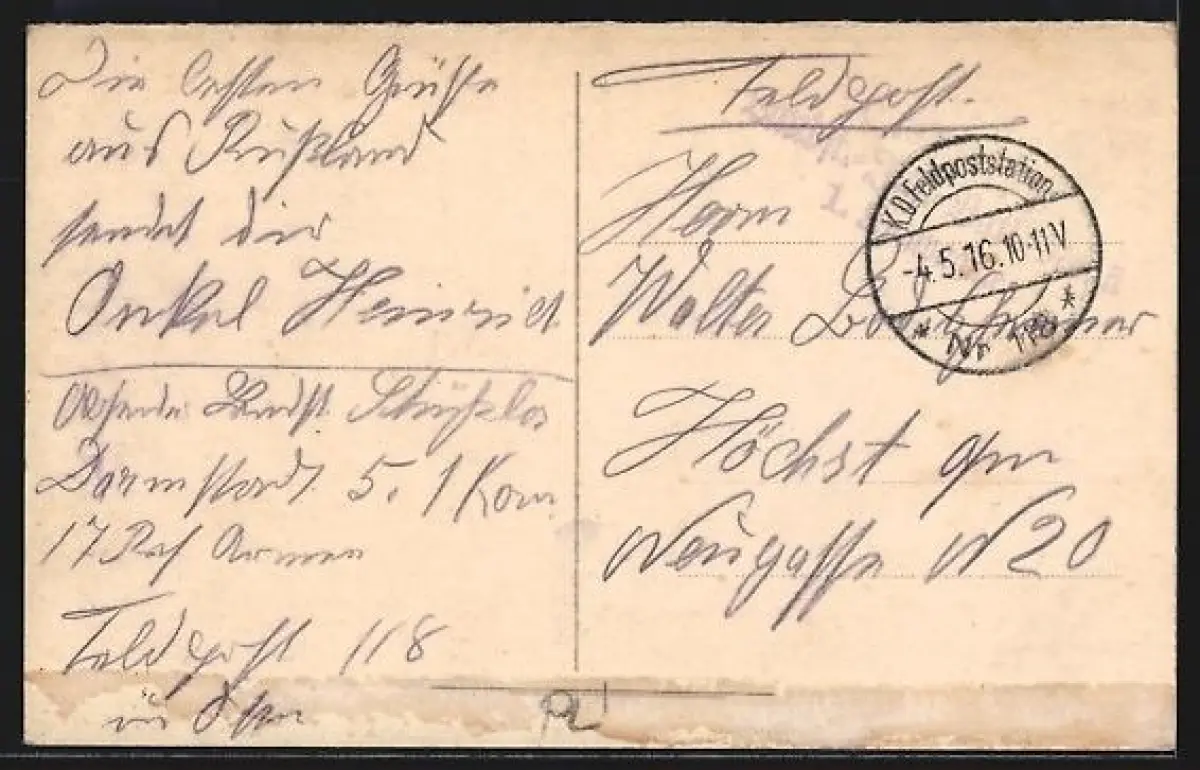 Die besten Grüße
aus Rußland
sendet dir
Onkel Heinrich
Absender Landst.
Darmstadt 5. 1 Kom
17 Armee
Feldpost 118
im Osten
Feldpost.
Herrn
Walter
Höchst a/m
Neugasse N 20
K.D. Feldpoststation
-4.5.16.10-11V
* Nr. 118 *